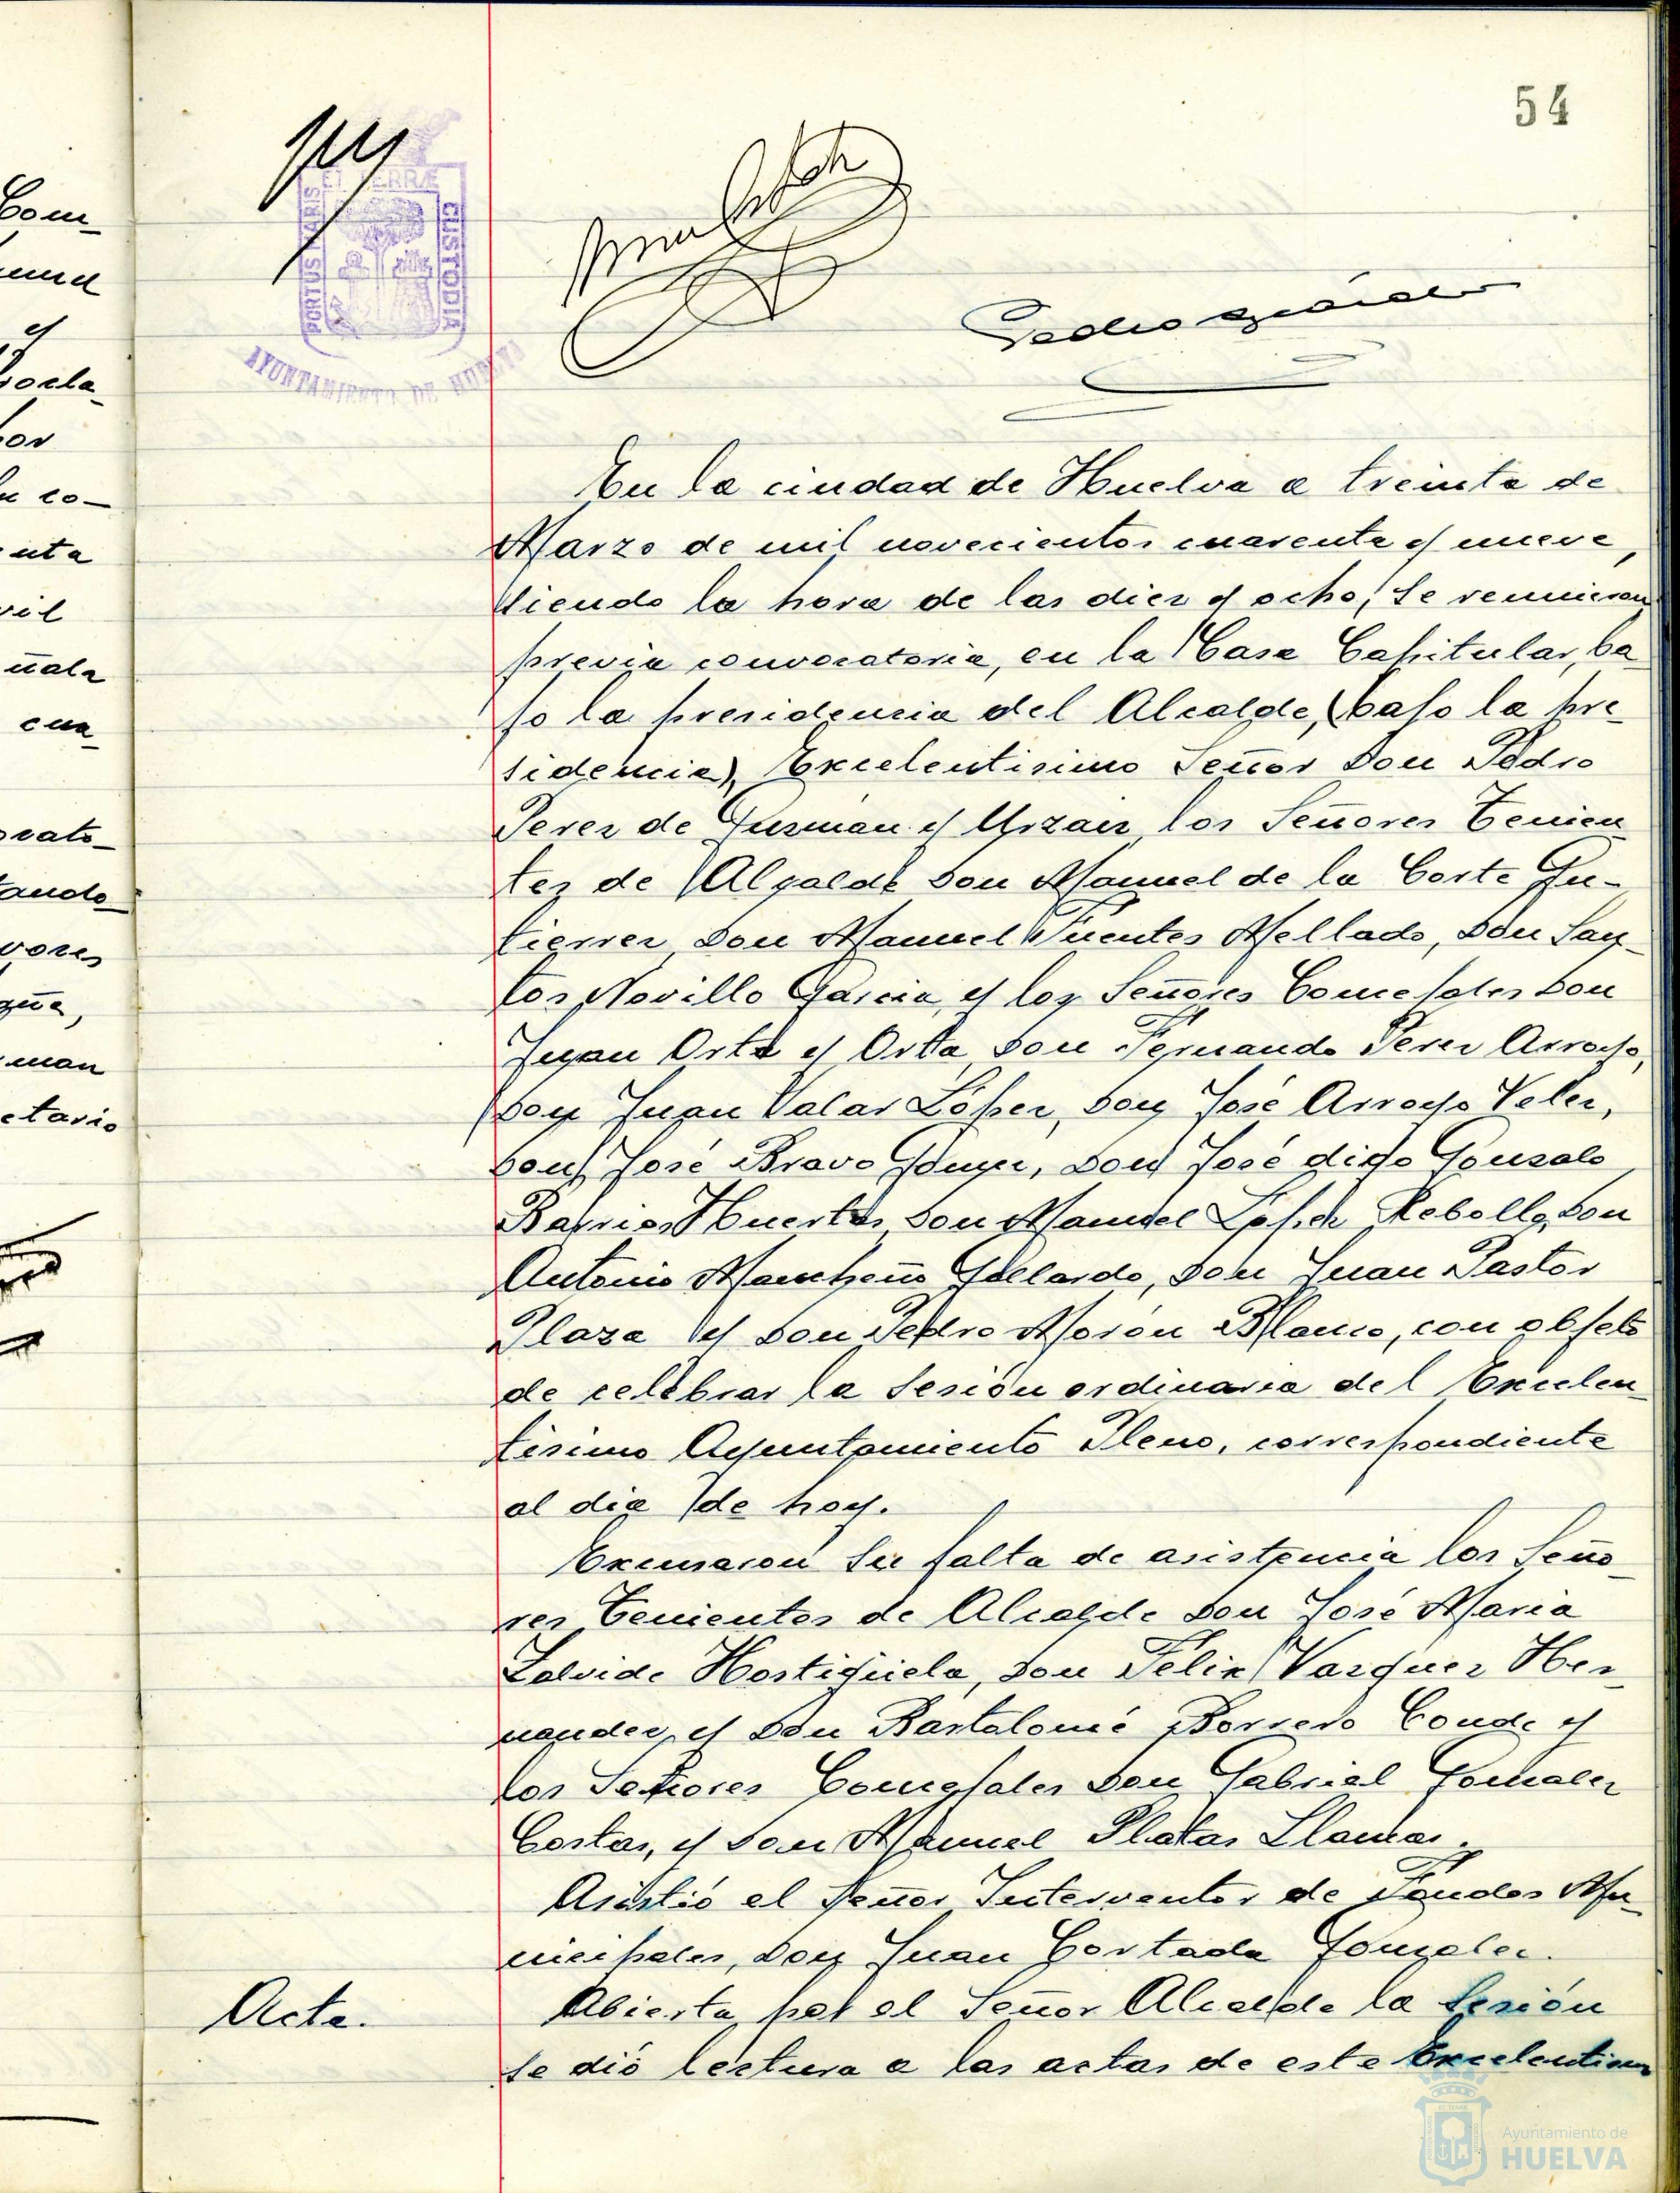 54
PORTUS MARIS ET TERRÆ CUSTODIA
AYUNTAMIENTO DE HUELVA
En la ciudad de Huelva a treinta de
Marzo de mil novecientos cuarenta y nueve,
siendo la hora de las diez y ocho, se reunieron
previa convocatoria, en la Casa Capitular, ba
jo la presidencia del Alcalde, (bajo la pre-
sidencia), Excelentisimo Señor Don Pedro
Perez de Guzmán y Urzaiz, los Señores Tenien
tes de Alcalde Don Manuel de la Corte Gu-
tierrez, Don Manuel Fuentes Mellado, Don San-
tos Novillo Garcia, y los Señores Concejales Don
Juan Orta y Orta, Don Fernando Perez Arroyo,
Don Juan Salas López, Don José Arroyo Velez,
Don José Bravo Gómez, Don José digo Gonzalo
Barrios Huertas, Don Manuel López Rebollo, Don
Antonio Mancheño Gallardo, Don Juan Pastor
Plaza y Don Pedro Morón Blanco, con objeto
de celebrar la sesión ordinaria del Excelen
tisimo Ayuntamiento Pleno, correspondiente
al dia de hoy.
Excusaron su falta de asistencia los Seño-
res Tenientes de Alcalde Don José Maria
Zalvide Hostigüela, Don Felix Vazquez Her-
nandez, y Don Bartolomé Borrero Conde y
los Señores Concejales Don Gabriel Gonzalez
Costas, y Don Manuel Platas Llamas.
Asistió el Señor Interventor de Fondos Mu-
nicipales, Don Juan Cortada Gonzalez.
Acta.
Abierta por el Señor Alcalde la sesión
se dió lectura a las actas de este Excelentisimo
Ayuntamiento de
HUELVA